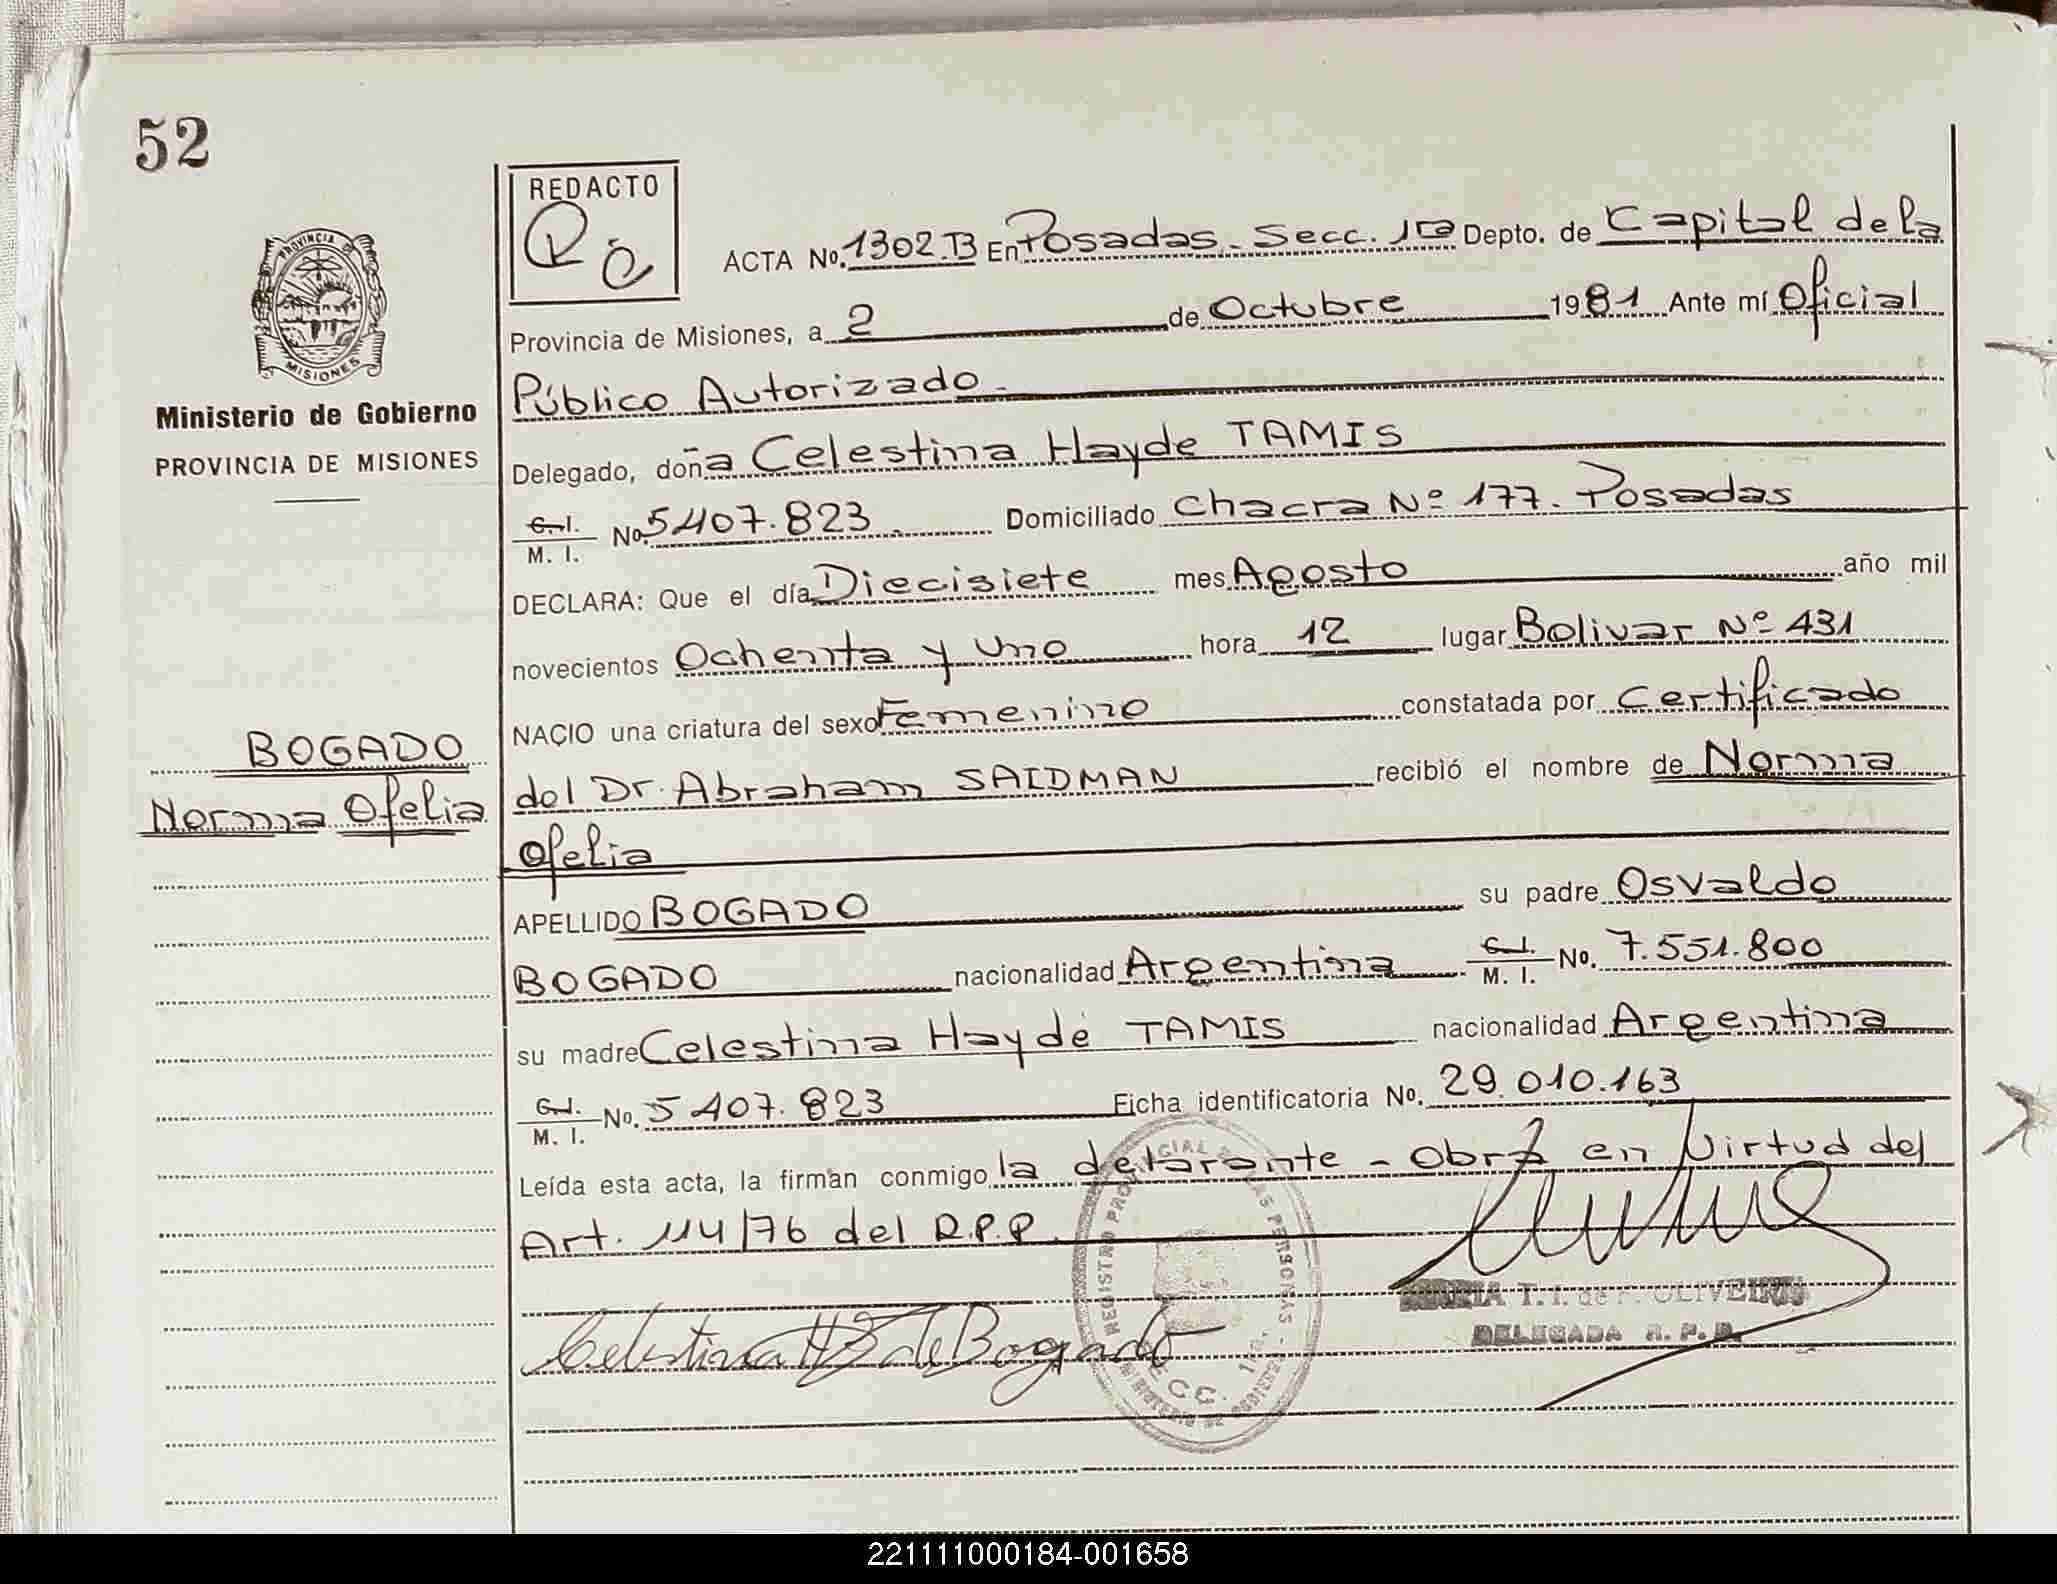 52
PROVINCIA DE
MISIONES
Ministerio de Gobierno
PROVINCIA DE MISIONES
BOGADO
Norma Ofelia
REDACTO
ACTA No. 1302.B En Posadas - Secc. 1ra Depto. de Capital de la
Provincia de Misiones, a 2 de Octubre 1981 Ante mí Oficial
Público Autorizado -
Delegado, doña Celestina Hayde TAMIS
C. I.
M. I. No. 5407.823 Domiciliado Chacra Nº 177. Posadas
DECLARA: Que el día Diecisiete mes Agosto año mil
novecientos Ochenta y Uno hora 12 lugar Bolivar Nº 431
NACIO una criatura del sexo Femenino constatada por Certificado
del Dr. Abraham SAIDMAN recibió el nombre de Norma
Ofelia
APELLIDO BOGADO su padre Osvaldo
BOGADO nacionalidad Argentina C. I.
M. I. No. 7.551.800
su madre Celestina Haydé TAMIS nacionalidad Argentina
C. I.
M. I. No. 5407.823 Ficha identificatoria No. 29.010.163
Leída esta acta, la firman conmigo la declarante - Obra en Virtud del
Art. 114/76 del R.P.P.
REGISTRO PROVINCIAL DE LAS PERSONAS -
SECC. 1ra.
MINISTERIO DE GOBIERNO
MARIA T. I. de F. OLIVEIRA
DELEGADA R. P. P.
Celestina H T de Bogado
221111000184-001658